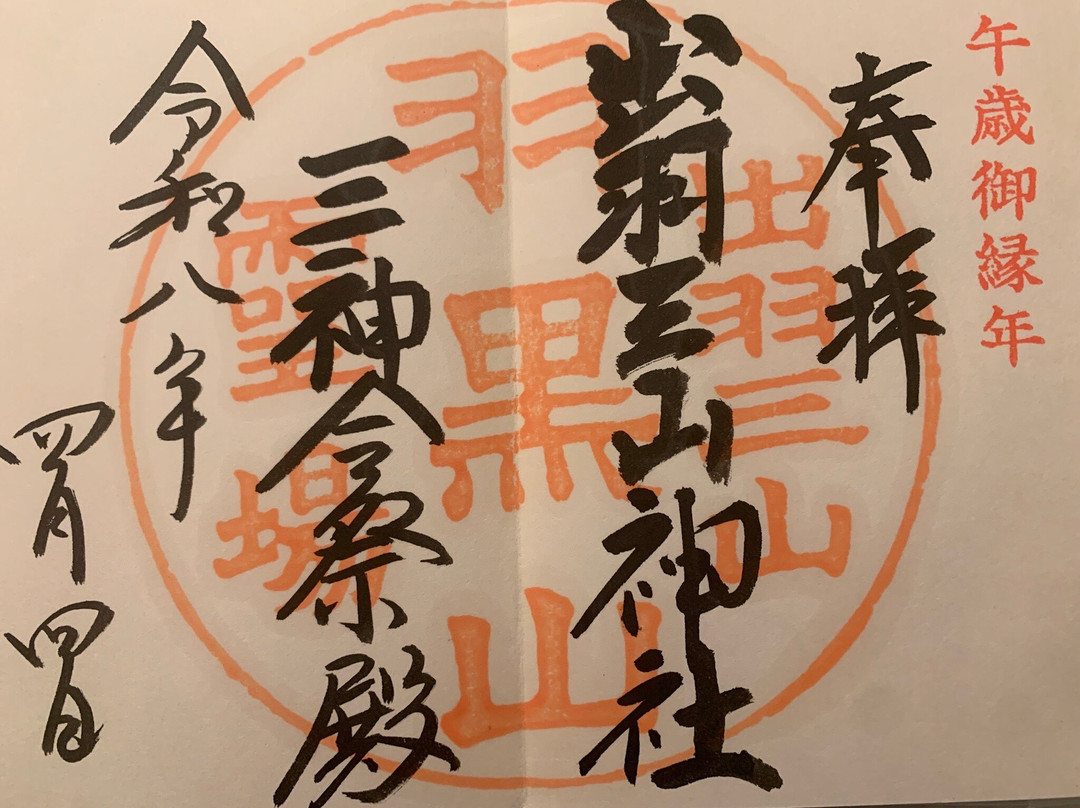 午歳御縁年
奉拝
出羽三山神社
三神合祭殿
令和八年
四月四日
出羽三山
羽黒山
霊場